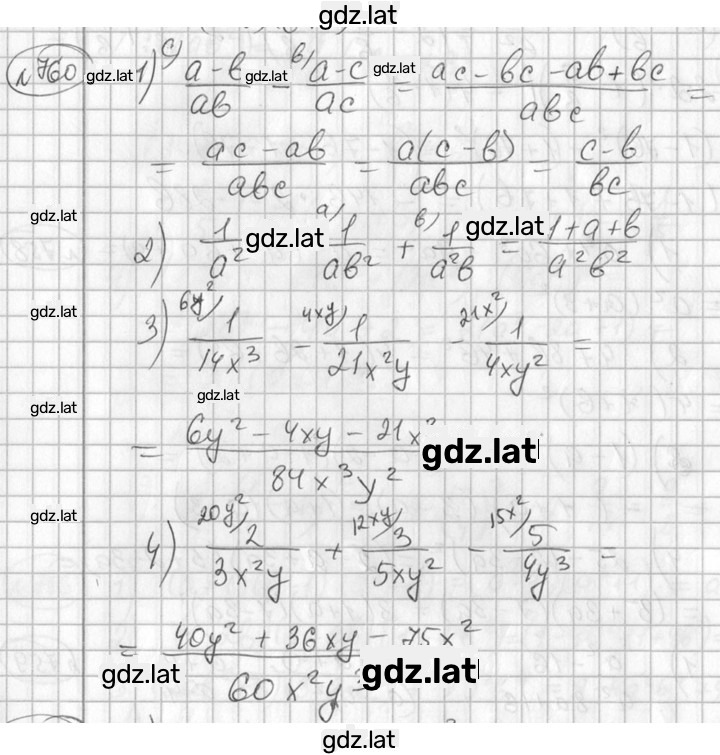 gdz.lat
№760 gdz.lat 1) c) (a-b)/(ab) gdz.lat - b/ (a-c)/(ac) gdz.lat = (ac-bc-ab+bc)/(abc) =
= (ac-ab)/(abc) = (a(c-b))/(abc) = (c-b)/(bc)
gdz.lat 2) 1/a² gdz.lat a/ 1/(ab²) + b/ 1/(a²b) gdz.lat = (1+a+b)/(a²b²)
gdz.lat 3) 6y²/ 1/(14x³) - 4xy/ 1/(21x²y) - 21x²/ 1/(4xy²) =
gdz.lat
gdz.lat = (6y²-4xy-21x²)/(84x³y²) gdz.lat
gdz.lat 4) 20y²/ 2/(3x²y) + 12xy/ 3/(5xy²) - 15x²/ 5/(4y³) =
= (40y²+36xy-75x²)/(60x²y³)
gdz.lat gdz.lat
gdz.lat